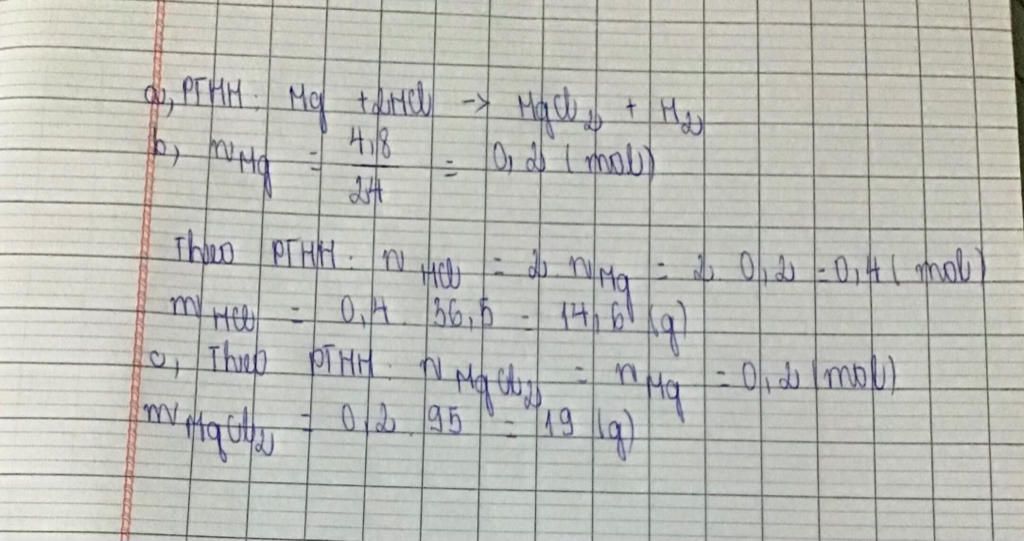 a, PTHH: Mg + 2HCl -> MgCl2 + H2
b, nMg = 4,8 / 24 = 0,2 (mol)
Theo PTHH: nHCl = 2. nMg = 2. 0,2 = 0,4 (mol)
mHCl = 0,4. 36,5 = 14,6 (g)
c, Theo PTHH: nMgCl2 = nMg = 0,2 (mol)
mMgCl2 = 0,2. 95 = 19 (g)